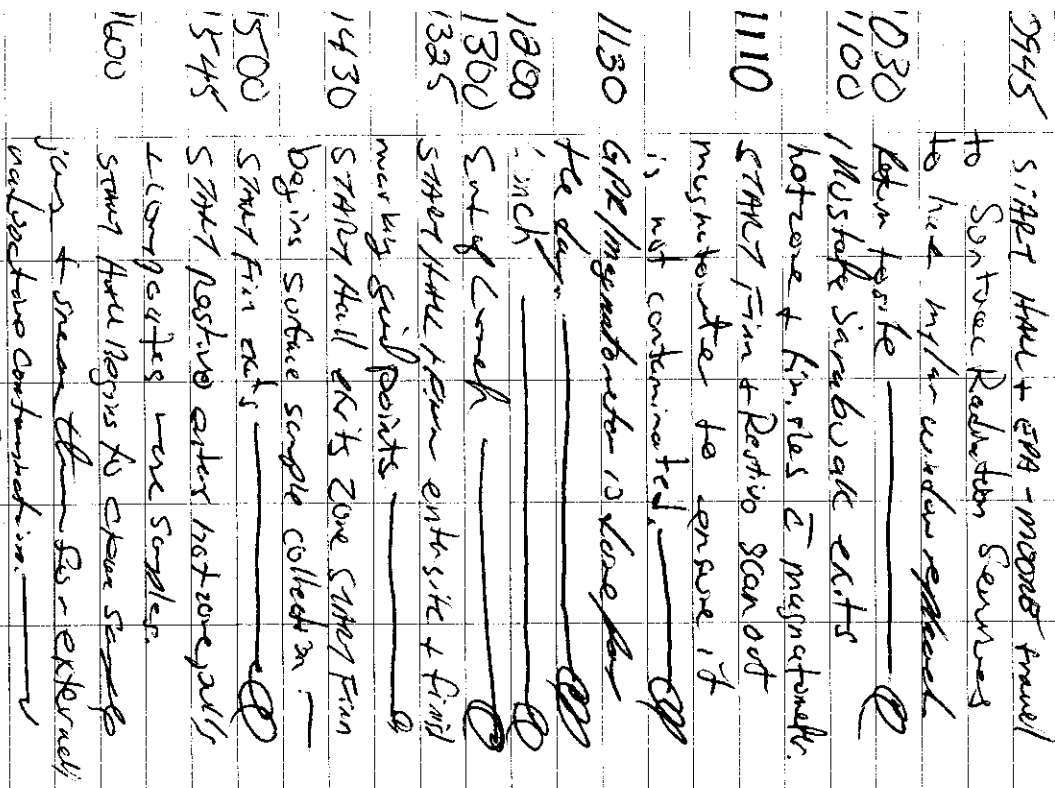 0945 START HALL + EPA-MOORE travel
to Syntrec Radiation Services
to have mylar window replaced
1030 Return to site
1100 Mustafa Sarabuak exits
hotzone + finishes c̄ magnetometer.
1110 START Finn + Restivo scan out
magnetometer to ensure it
is not contaminated.
1130 GPR/Magnetometer is done for
the day.
1200 Lunch
1300 End of Lunch
1325 START HALL + Finn enter site + finish
marking grid points
1430 START Hall exits zone START Finn
begins surface sample collection
1500 START Finn exits
1545 START Restivo enters hotzone, pulls
composites more samples.
1600 START Hall begins to clean sample
jars + smear them for external
radioactive contamination.